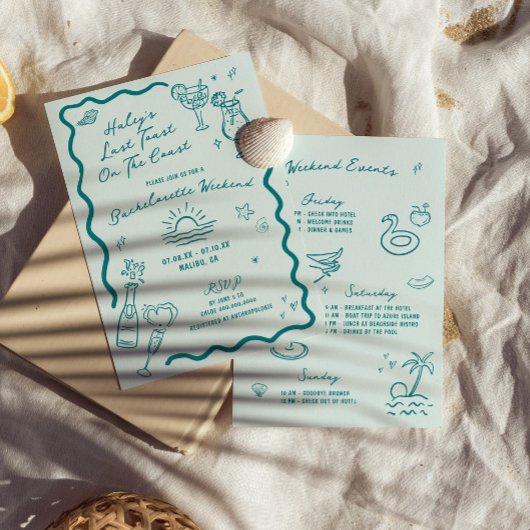 Haley's
Last Toast
On The Coast
PLEASE JOIN US FOR A
Bachelorette Weekend
07.08.XX - 07.10.XX
MALIBU, CA
RSVP
BY JUNE 5 TO
CHLOE 000.000.0000
REGISTERED AT ANTHROPOLOGIE
Weekend Events
Friday
PM - CHECK INTO HOTEL
- WELCOME DRINKS
- DINNER & GAMES
Saturday
AM - BREAKFAST AT THE HOTEL
AM - BOAT TRIP TO AZURE ISLAND
PM - LUNCH AT BEACHSIDE BISTRO
PM - DRINKS BY THE POOL
Sunday
10 AM - GOODBYE BRUNCH
12 PM - CHECK OUT OF HOTEL